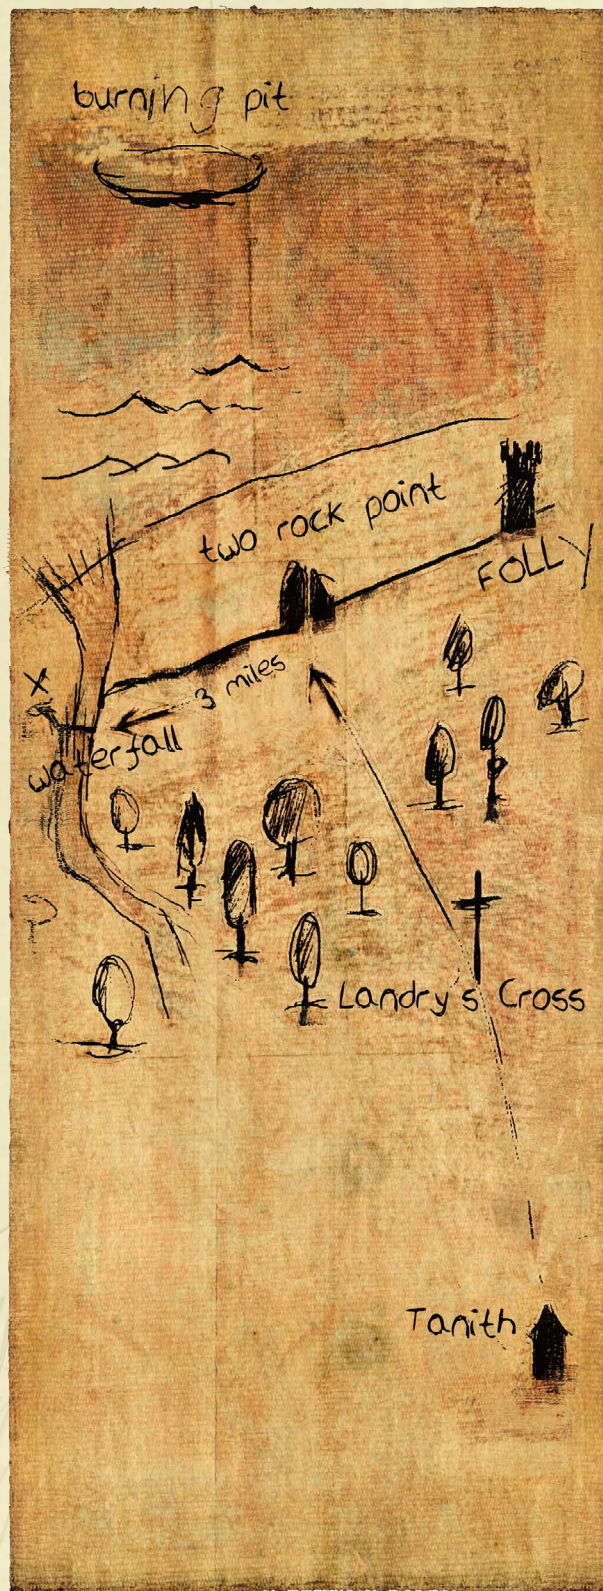 burning pit
two rock point
FOLLY
X
3 miles
waterfall
Landry's Cross
Tanith